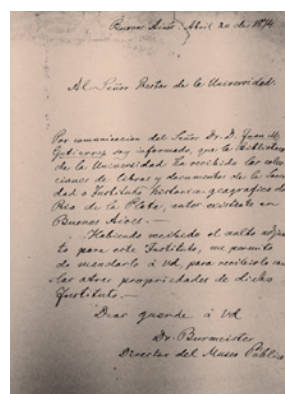 Buenos Aires, Abril 20 de 1874
Al Señor Rector de la Universidad.
Por comunicacion del Señor Dr. D. Juan M.
Gutierrez soy informado, que la Biblioteca
de la Universidad ha recibido las colec-
ciones de libros y documentos de la Socie-
dad o Instituto historico-geografico del
Rio de la Plata, antes existente en
Buenos Aires.—
Habiendo recibido el
para este Instituto, me permito
de mandarlo á Vd, para recibirlo con
las otras propriedades de dicho
Instituto.—
Dios guarde á Vd
Dr. Burmeister
Director del Museo Público